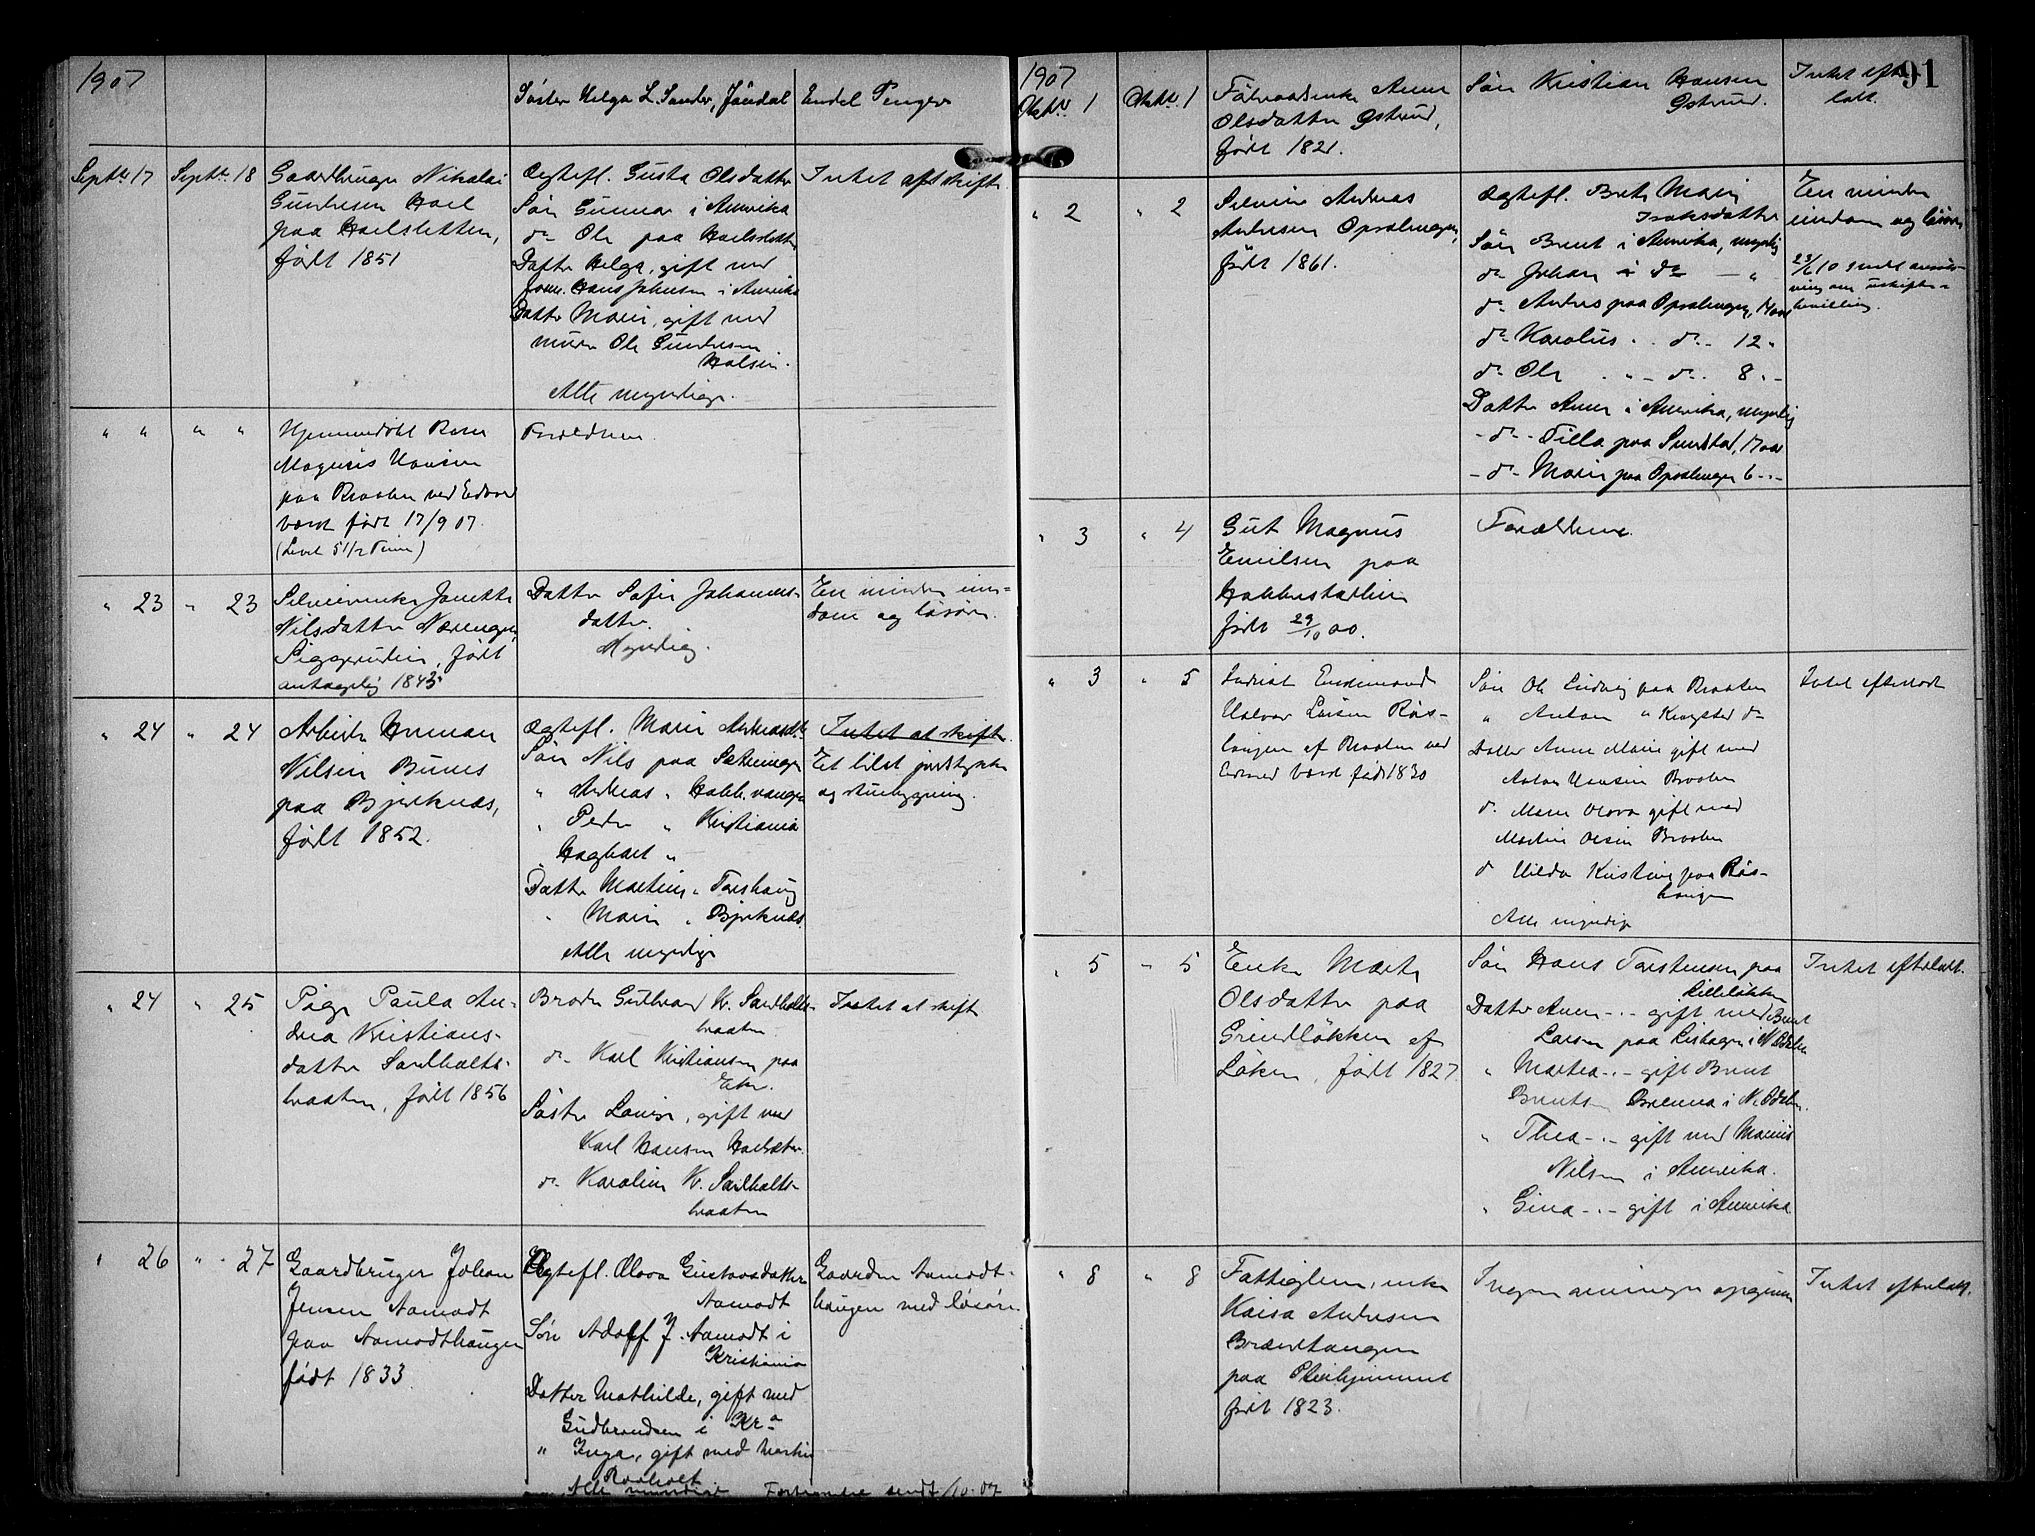 1907
Søster Helga L. Sander, Jöndal
Endel Penger
Septbr 17
Septbr 18
Gaardbruger Nikolai
Gundersen Hoel
paa Hoelsletten,
født 1851
Ægtefl. Gusta Olsdatter
Søn Gunnar i Amerika
do Ole paa Hoelsletten
Datter Helga, gift med
Hans Johnsen i Amerika
Datter Marie, gift med
murer Ole Gundersen
Holsen.
Alle myndige.
Intet at skifte
" " " "
Hjemmedøbt Barn
Magnus Hansen
paa Braaten ved Eidsvold
Værk født 17/9 07.
(Levet 5 1/2 Time)
Forældrene.
" 23 " 23
Selveierenke Janette
Nilsdatter Nærengen,
Siggerudeie, født
antagelig 1843
Datter Sofie Johannes-
datter.
Myndig.
En mindre eien-
dom og løsøre.
" 24 " 24
Arbeider Herman
Nilsen Bunes
paa Bjerknæs,
født 1852.
Ægtefl. Marie Andreasdtr
Søn Nils paa Sætreenger
" Andreas "
" Peder " Kristiania
Hagbart "
Datter Martine " Torshaug
" Marie " Bjerknæs.
Alle myndige
Intet at skifte.
Et lidet jordstykke
og stuebygning.
" 24 " 25
Pige Paula An-
drea Kristians-
datter Sandholts-
braaten, født 1856
Broder Gulbrand K. Sandholts-
braaten.
do Karl Kristiansen paa
Eker.
Søster Lovise, gift med
Karl Hansen
do Karoline K. Sandholts-
braaten
Intet at skifte
" 26 " 27
Gaardbruger Johan
Jensen Aamodt
paa Aamodthaugen
født 1833
Ægtefl. Olava Gustavsdatter
Aamodt
Søn Adolf J. Aamodt i
Kristiania
Datter Mathilde, gift med
Gudbrandsen i Kr.a
" Inga, gift med Martin
Raaholt
Alle myndige
Gaarden Aamodt-
haugen med løsøre.
sendt /10-07
91
1907
Oktbr 1
Oktbr 1
Føderaadsenke Anne
Olsdatter Østrud,
født 1821.
Søn Kristian Hansen
Østrud.
Intet efter-
ladt.
" 2 " 2
Selveier Andreas
Andersen Opsalengen,
født 1861.
Ægtefl. Berte Marie
Isaksdatter
Søn Bernt i Amerika, myndig
do Johan i do — "
do Anders paa Opsalengen, 17 aar
do Karolus " do 12 "
do Ole " do 8 "
Datter Anna i Amerika, myndig
" do " Tilla paa Sundstad, 17 aar
" do " Marie paa Opsalengen 6 "
En mindre
eiendom og løsøre
23/10 sendt ansøk-
ning om uskifte-
bevilling.
" 3 " 4
Gut Magnus
Emilsen paa
Habberstadeie
født 29/10 00.
Forældrene.
" 3 " 5
Inderst Enkemand
Halvor Larsen Røis-
haugen af Braaten ved
Eidsvold Værk født 1830
Søn Ole Ludvig paa Braaten
" Anton " do
Datter Anne Marie gift med
Anton Hansen Braaten
do Maren Olava gift med
Martin Olsen Braaten
do Hilda Kristine paa Røis-
haugen
Alle myndige
Intet efterladt
" 5 " 5
Enke Marte
Olsdatter paa
Grindløkken af
Løken, født 1827.
Søn Hans Torstensen paa
Lilleløkken
Datter Anne " gift med Bernt
Larsen paa Lishagen i N. Odalen
" Martea " gift Bernt
Berntsen Brenna i N. Odalen.
" Thea " gift med Marius
Nilsen i Amerika.
" Gina " gift i Amerika
Intet efterladt.
" 8 " 8
Fattiglem, enke
Kaisa Andersen
Brændtangen
paa Pleiehjemmet
født 1823.
Ingen arvinger opgivne
Intet efterladt.